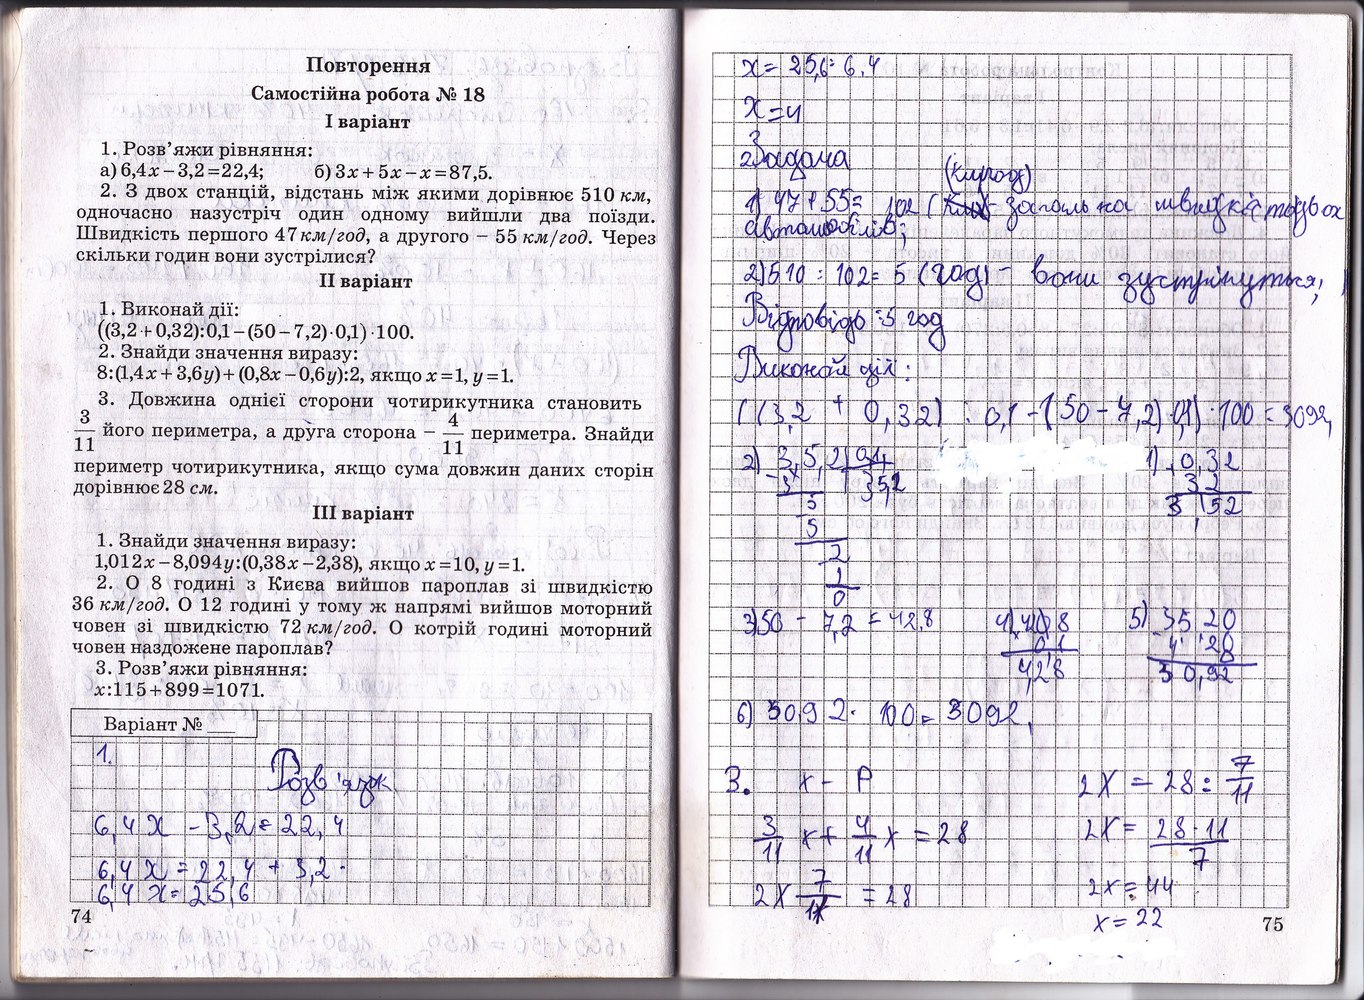 Повторення
Самостійна робота № 18
I варіант
1. Розв’яжи рівняння:
а) 6,4x – 3,2 = 22,4; б) 3x + 5x – x = 87,5.
2. З двох станцій, відстань між якими дорівнює 510 км,
одночасно назустріч один одному вийшли два поїзди.
Швидкість першого 47 км/год, а другого – 55 км/год. Через
скільки годин вони зустрілися?
II варіант
1. Виконай дії:
((3,2 + 0,32):0,1 – (50 – 7,2)·0,1)·100.
2. Знайди значення виразу:
8:(1,4x + 3,6y) + (0,8x – 0,6y):2, якщо x = 1, y = 1.
3. Довжина однієї сторони чотирикутника становить
3/11 його периметра, а друга сторона – 4/11 периметра. Знайди
периметр чотирикутника, якщо сума довжин даних сторін
дорівнює 28 см.
III варіант
1. Знайди значення виразу:
1,012x – 8,094y:(0,38x – 2,38), якщо x = 10, y = 1.
2. О 8 годині з Києва вийшов пароплав зі швидкістю
36 км/год. О 12 годині у тому ж напрямі вийшов моторний
човен зі швидкістю 72 км/год. О котрій годині моторний
човен наздожене пароплав?
3. Розв’яжи рівняння:
x:115 + 899 = 1071.
Варіант № ___
1.
Розв'язок
6,4x - 3,2 = 22,4
6,4x = 22,4 + 3,2
6,4x = 25,6
74
x = 25,6 : 6.4
x = 4
2 Задача
(км/год)
1) 47 + 55 = 102 ( - загальна швидкість двох
автомобілів;
2) 510 : 102 = 5 (год) - вони зустрінуться;
Відповідь: 5 год
Виконай дії:
((3,2 + 0,32) : 0,1 - (50 - 7,2) · 0,1) · 100 = 3092,
2) 3,5,2 0,1 1) 0,32
3 35,2 3 2
5 3 52
5
2
0
3) 50 - 7,2 = 42,8 4) 5) 35 20
0 1 4 28
428 30,92
6) 30,92 · 100 = 3092,
3. x - P 2x = 28 : 7/11
3/11 x + 4/11 x = 28 2x = 28·11/7
2x 7/11 = 28 2x = 44
x = 22
75